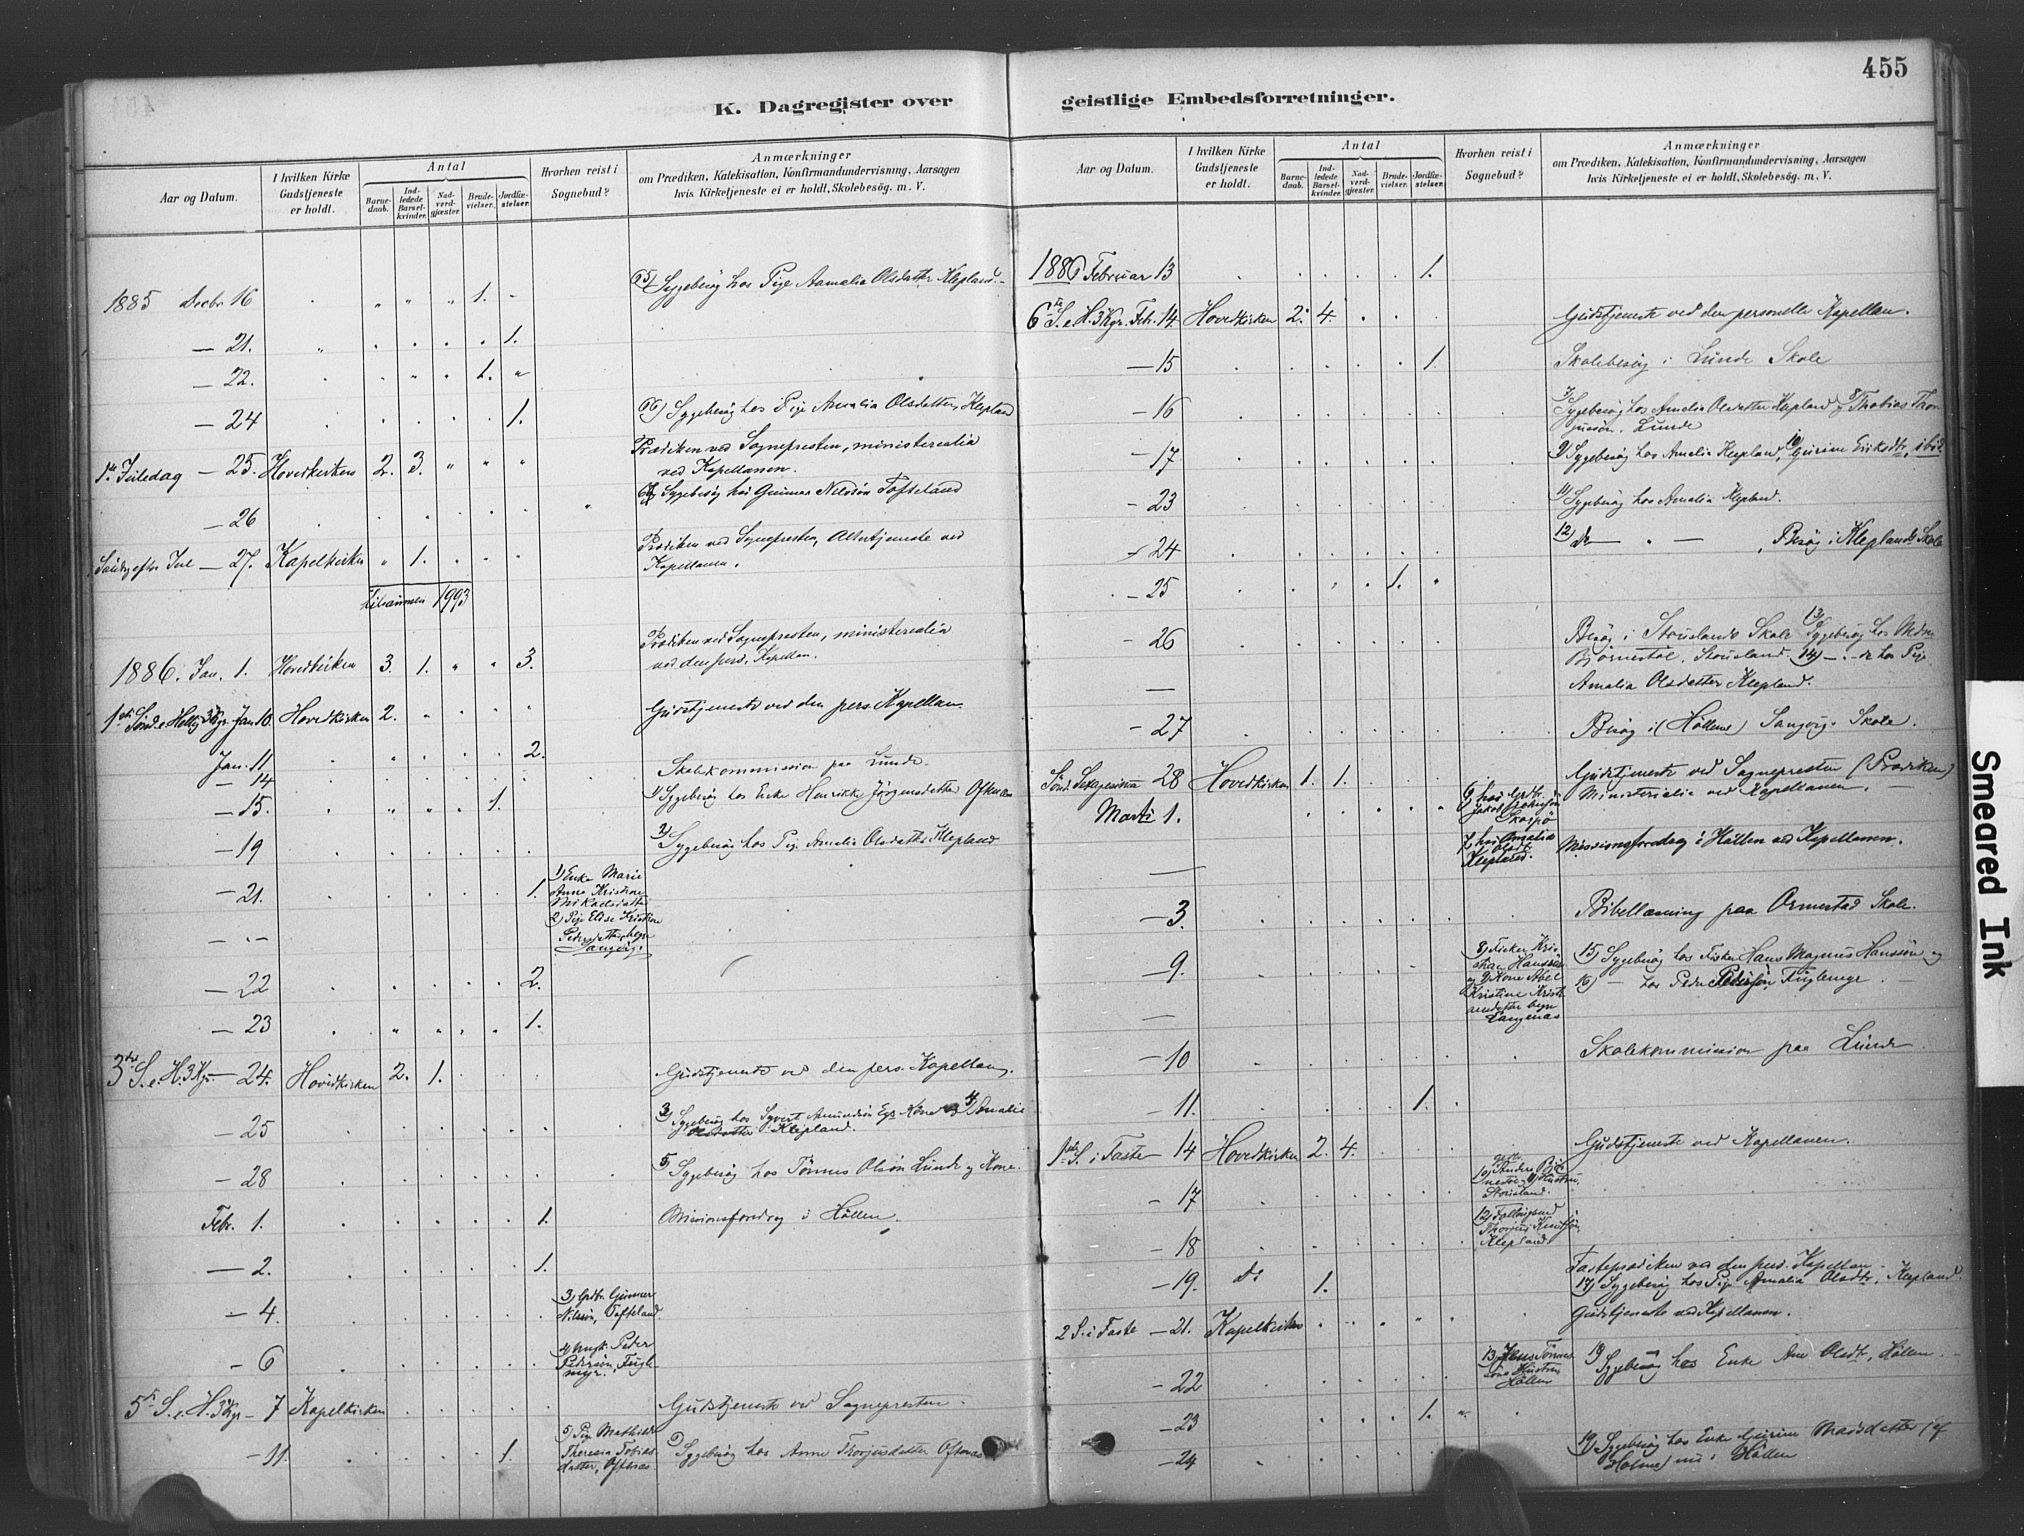 455
K. Dagregister over geistlige Embedsforretninger.
Aar og Datum.
I hvilken Kirke Gudstjeneste er holdt.
Antal
Barnedaab.
Indledede Barselkvinder.
Nadverdgjæster.
Brudevielser.
Jordfæstelser.
Hvorhen reist i Sognebud?
Anmærkninger
om Prædiken, Katekisation, Konfirmandundervisning, Aarsagen
hvis Kirketjeneste ei er holdt, Skolebesøg. m. V.
1885 Decbr 16 " " " 1. " 65) Sygebesøg hos Pige Aamalia Olsdatter Klepland.
— 21. 1.
— 22. 1. "
— 24 1. 66) Sygebesøg hos Pige Amalia Olsdatter, Klepland
1ste Juledag — 25. Hovedkirken 2. 3. " " " Prædiken ved Sognepresten, ministerialia
ved Kapellanen.
— 26 Sygebesøg hos Gunnar Nilssøn Tofteland
Søndag efter Jul — 27. Kapelkirken " 1. Prædiken ved Sognepresten, Altertjeneste ved
Kapellanen.
Tilsammen 1993
1886. Jan. 1. Hovedkirken 3. 1. " " 3. Prædiken ved Sognepresten, ministerialia
ved den pers. Kapellan.
1ste Sønd. e. Hellig 3 Kgr. Jan 10. Hovedkirken 2. Gudstjeneste ved den pers. Kapellan
Jan. 11 2.
— 14 Skolekommission paa Lunde.
— 15. " " 1. 1) Sygebesøg hos Enke Henrikke Jørgensdatter Oftenæs
— 19 2) Sygebesøg hos Pige Amalia Olsdatter Klepland
— 21. 1. 1) Enke Marie
Anna Kristine
Mikaelsdatter
2) Pige Elise Kristine
Pedersdatter, begge
Langvig.
— 22 2.
— 23 1.
3die S. e. H. 3 Kgr. — 24. Hovedkirken 2. 1. Gudstjeneste ved den pers. Kapellan.
— 25 3) Sygebesøg hos Syvert Amundsøn Egs Kone og 4) Amalie
Olsdatter Klepland.
— 28 5) Sygebesøg hos Tønnes Olsøn Lunde og Kone.
Febr. 1. 1. Missionsforedrag i Høllen.
— 2. 1.
— 4. 3) Grdbr. Gunner
Nilssøn, Tofteland
— 6 4) Ungk. Peder
Pedersøn, Fuglemyr.
5te S. e. H. 3 Kgr. — 7 Kapelkirken Gudstjeneste ved Sognepresten.
— 11. 1. 5) Pige Mathilde
Theresia Tobiasdatter, Oftenæs. Sygebesøg hos Anne Thorjusdatter Oftenæs
Aar og Datum.
I hvilken Kirke Gudstjeneste er holdt.
Antal
Barnedaab.
Indledede Barselkvinder.
Nadverdgjæster.
Brudevielser.
Jordfæstelser.
Hvorhen reist i Sognebud?
Anmærkninger
om Prædiken, Katekisation, Konfirmandundervisning, Aarsagen
hvis Kirketjeneste ei er holdt, Skolebesøg. m. V.
1886 Februar 13 1.
6te S. e. H. 3 Kgr. Febr. 14. Hovedkirken 2. 4. Gudstjeneste ved den personelle Kapellan.
— 15 1. Skolebesøg i Lunde Skole
— 16 7) Sygebesøg hos Amelia Olsdatter Klepland og 8) Thobias Thorjussøn, Lunde
— 17 9) Sygebesøg hos Amalia Klepland, 10) Gurine Eriksdtr. ibid.
— 23 11) Sygebesøg hos Amalia Klepland.
— 24 12) do — " — , Besøg i Kleplands Skole
— 25 1. "
— 26 Besøg i Stauslands Skole 13) Sygebesøg hos
Bjørnestøl, Stausland. 14) — do hos Pige
Amalia Olsdatter Klepland.
— 27 Besøg i (Høllens) Langvigs Skole.
Sønd. Sexagesima 28 Hovedkirken 1. 1. Gudstjeneste ved Sognepresten (Prædiken)
Ministerialia ved Kapellanen.
Marts 1. 6) hos Grdbr.
Jakob
7) hos Amalia
Olsdt.
Klepland. Missionsforedrag i Høllen ved Kapellanen.
— 3. Bibellæsning paa Ormestad Skole.
— 9. 8) Fisker Kristian Hanssøn
og 9) Kone Abel
Kristine Kristiansdatter begge
Langenæs 15) Sygebesøg hos Fisker Hans Magnus Hanssøn og
16) — hos Peder Pedersøn, Fuglemyr.
— 10 Skolekommission paa Lunde.
— 11. 1.
1ste S. i Faste 14 Hovedkirken 2. 4. Gudstjeneste ved Kapellanen.
— 17 10) Anders Bjørnestøl og 11) Hustru,
Stausland.
— 18 12)
Thorjus Knutssøn,
Klepland.
— 19. do 1. Fasteprædiken ved den pers. Kapellan
17) Sygebesøg hos Pige Amalia Olsdtr., Klepland.
2 S. i Faste — 21. Kapelkirken Gudstjeneste ved Kapellanen.
— 22 13) Jens Tønnessøns Hustru
Høllen 18) Sygebesøg hos Enke Ane Olsdt., Høllen.
— 23 1. "
— 24 19) Sygebesøg hos Enke Gurine Madsdatter (af
Holme) nu i Høllen
Smeared Ink